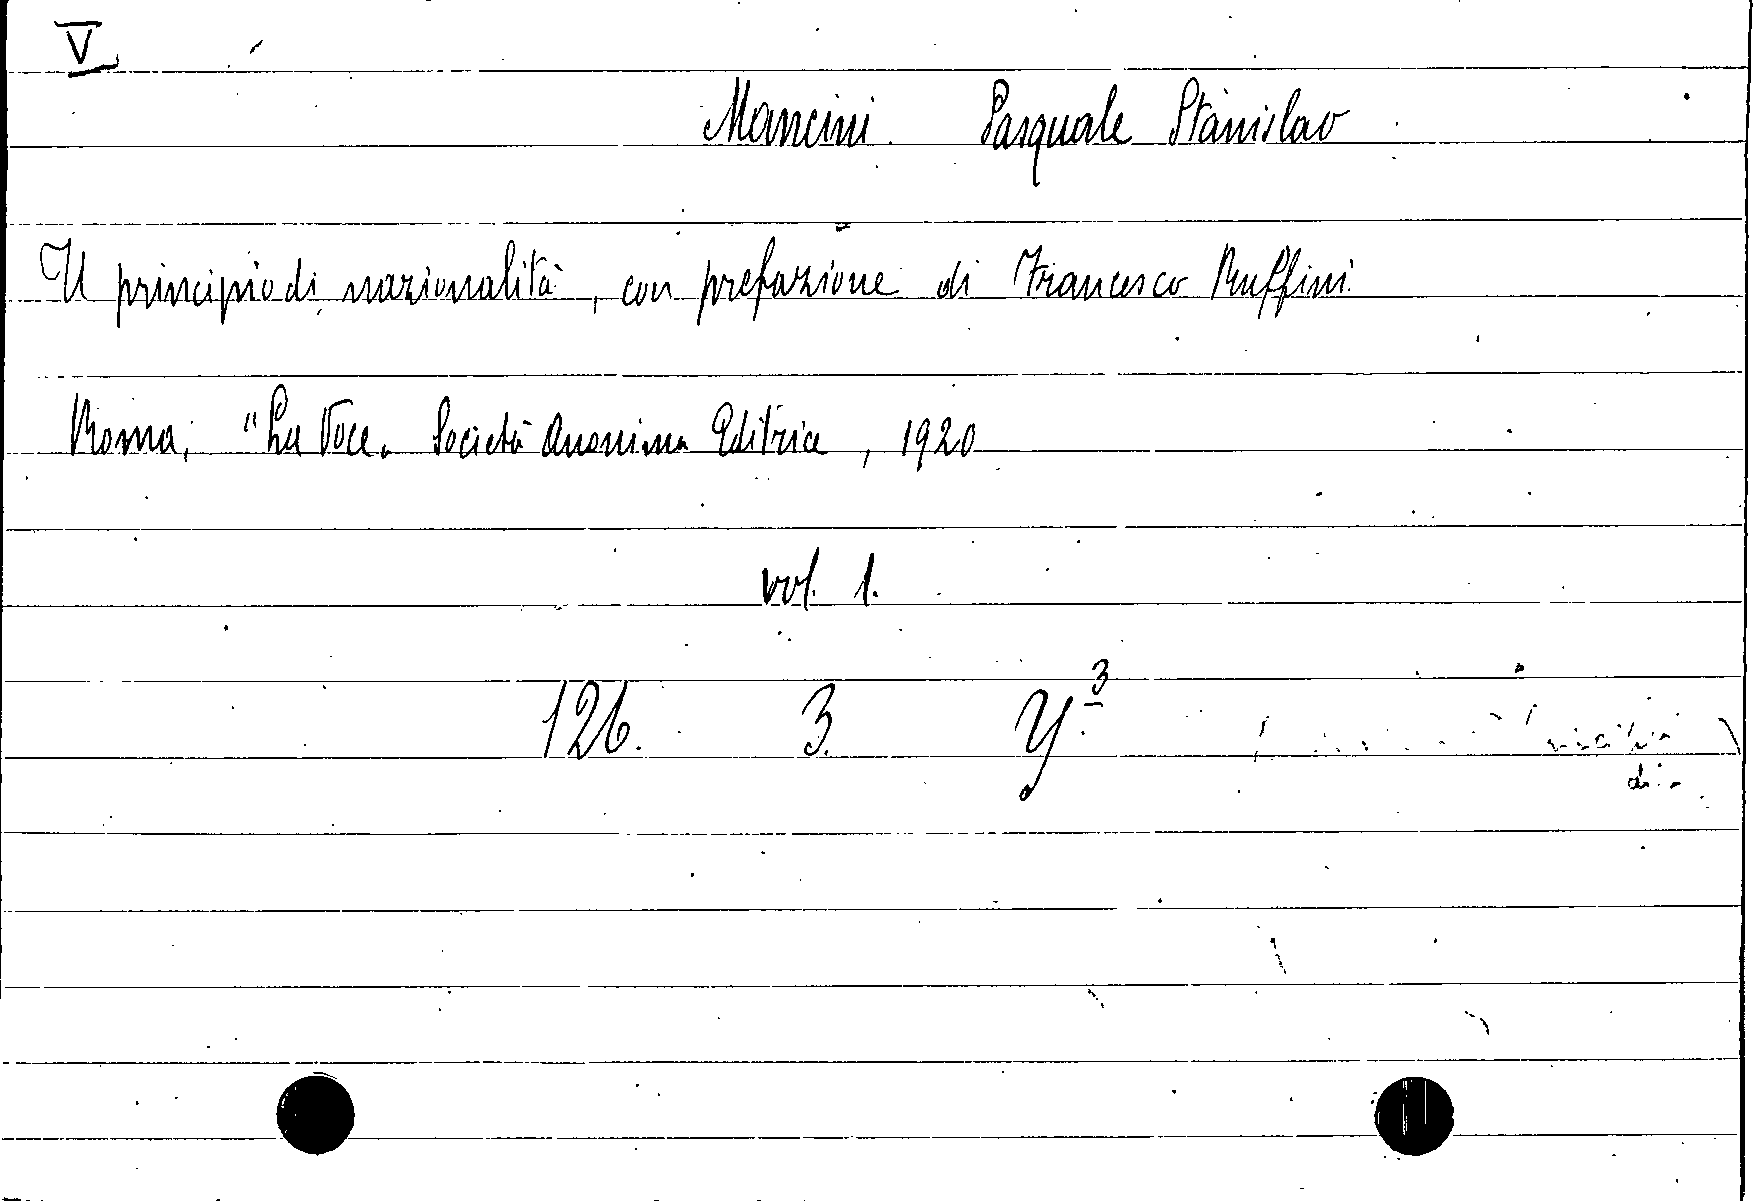 V
Mancini Pasquale Stanislao
Il principio di nazionalità, con prefazione di Francesco Ruffini
Roma, "La Voce„ Società Anonima Editrice, 1920
vol. 1.
126. 3. Y.3